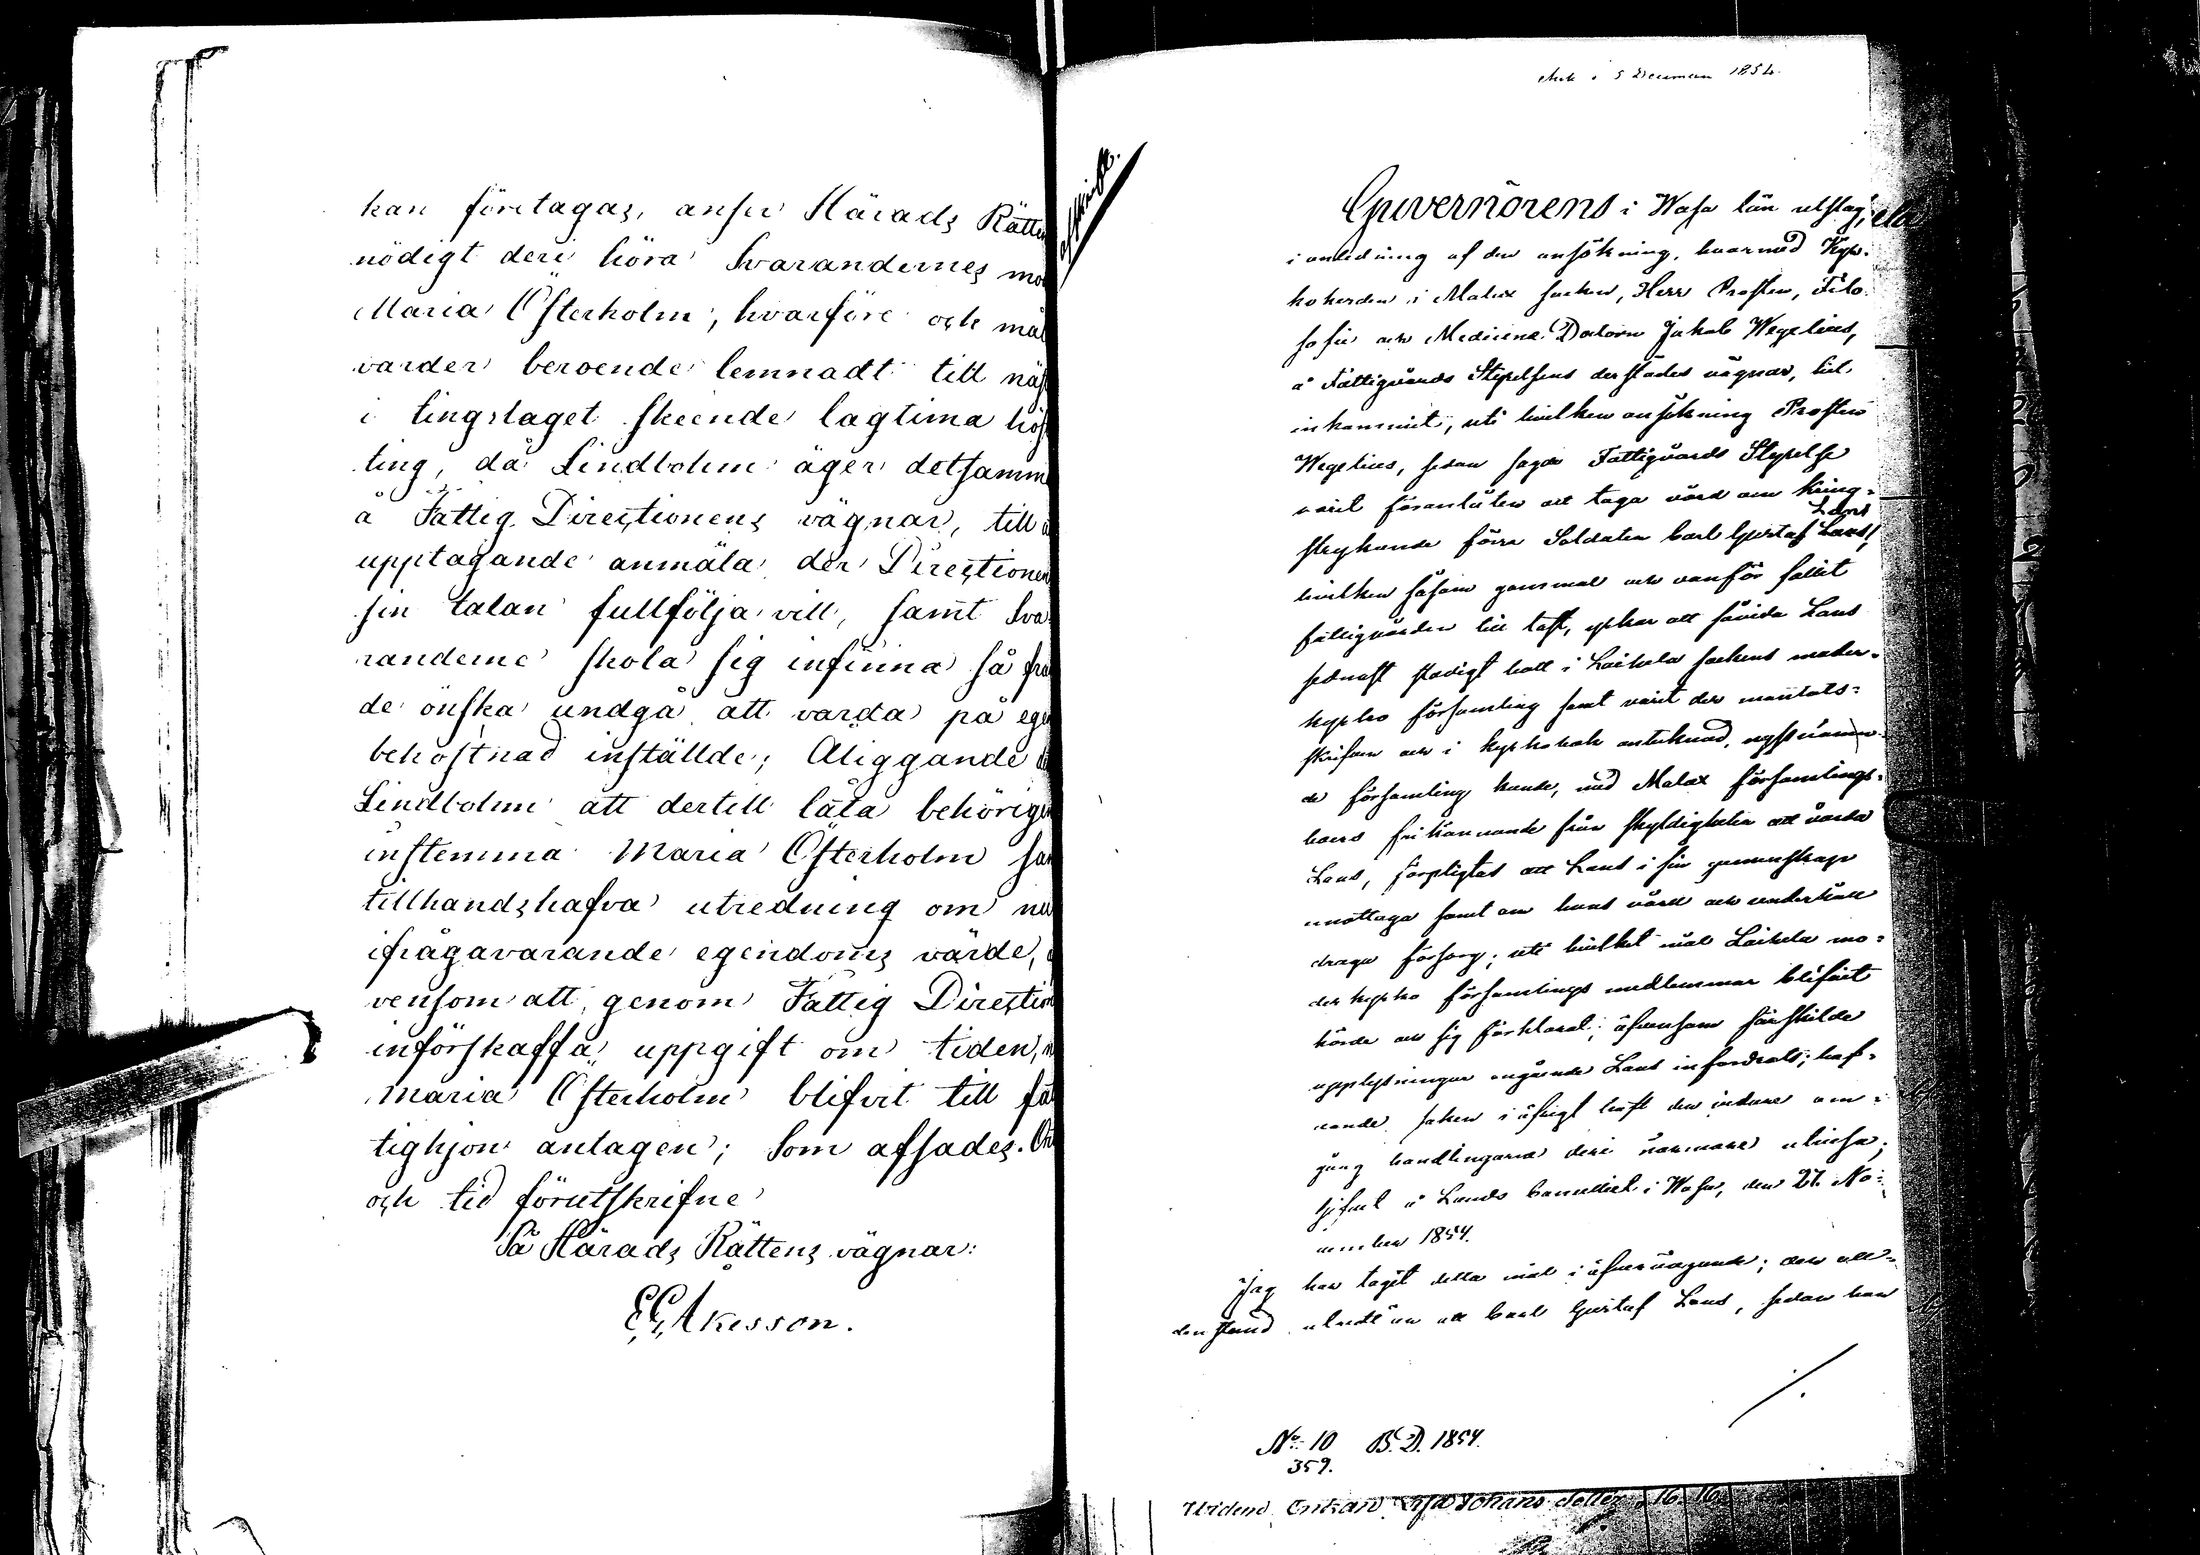 kan företagas, anser Härads Rätten
nödigt deri höra Svarandernes mo
Maria Österholm, hvarföre och mål
varder beroende lemnadt till näst
i tingslaget skeende lagtima höst
ting, då Lindbohm äger detsamm
å Fattig Directionens vägnar, till
upptagande anmäla, der Directionen
sin talan fullfölja vill, samt Sva
randerne skola sig infinna så fra
de önska undgå att varda på egen
bekostnad inställde; Åliggande
Lindbohm att dertill låta behörigen
instemma Maria Österholm sam
tillhandshafva utredning om nu
ifrågavarande egendoms värde,
vensom att, genom Fattig Direction
införskaffa uppgift om tiden, n
Maria Österholm blifvit till fat
tighjon antagen; Som afsades. Or
och tid förutskrifne
På Härads Rättens vägnar:
EG Åkesson.
Afskrift.
i 5 December 1854.
Guvernörens i Wasa län utslag,
i anledning af den ansökning, hvarmed Kyr-
koherden i Malax socken, Herr Prosten, Filo-
sofie och Medicine Doctorn Jakob Wegelius,
å Fattigvårds Styrelsens derstädes vägnar, hit
inkommit, uti hvilken ansökning Prosten
Wegelius, sedan sagde Fattigvårds Styrelse
varit föranlåten att taga vård om kring-
strykande förre Soldaten Carl Gustaf Lans,
Lans
hvilken såsom gammal och vanför fallit
fattigvården till last, yrkar att såvida Lans
sednast stadigt hall i Laihela sockens moder-
kyrko församling samt varit der mantals-
skrifven och i kyrkobok antecknad, nystnämn-
de församling kunde, med Malax församlings-
boers frikännande från skyldigheten att vårda
Lans, förpligtas att Lans i sin gemenskap
mottaga samt om hans vård och underhåll
draga försorg; uti hvilket mål Laihela mo-
derkyrko församlings medlemmar blifvit
hörde och sig förklarat; äfvensom särskilde
upplysningar angående Lans infordrats; haf-
vande saken i öfrigt haft den vidare om-
gång handlingarna deri närmare utvisa;
gifvet å Lands Cancelliet i Wasa, den 27 No-
vember 1854.
Jag har tagit detta mål i öfvervägande; och all-
den stund utredt är att Carl Gustaf Lans, sedan han
./.
No 10 B. D. 1854.
359.
Enkan Johans dotter 16. 16